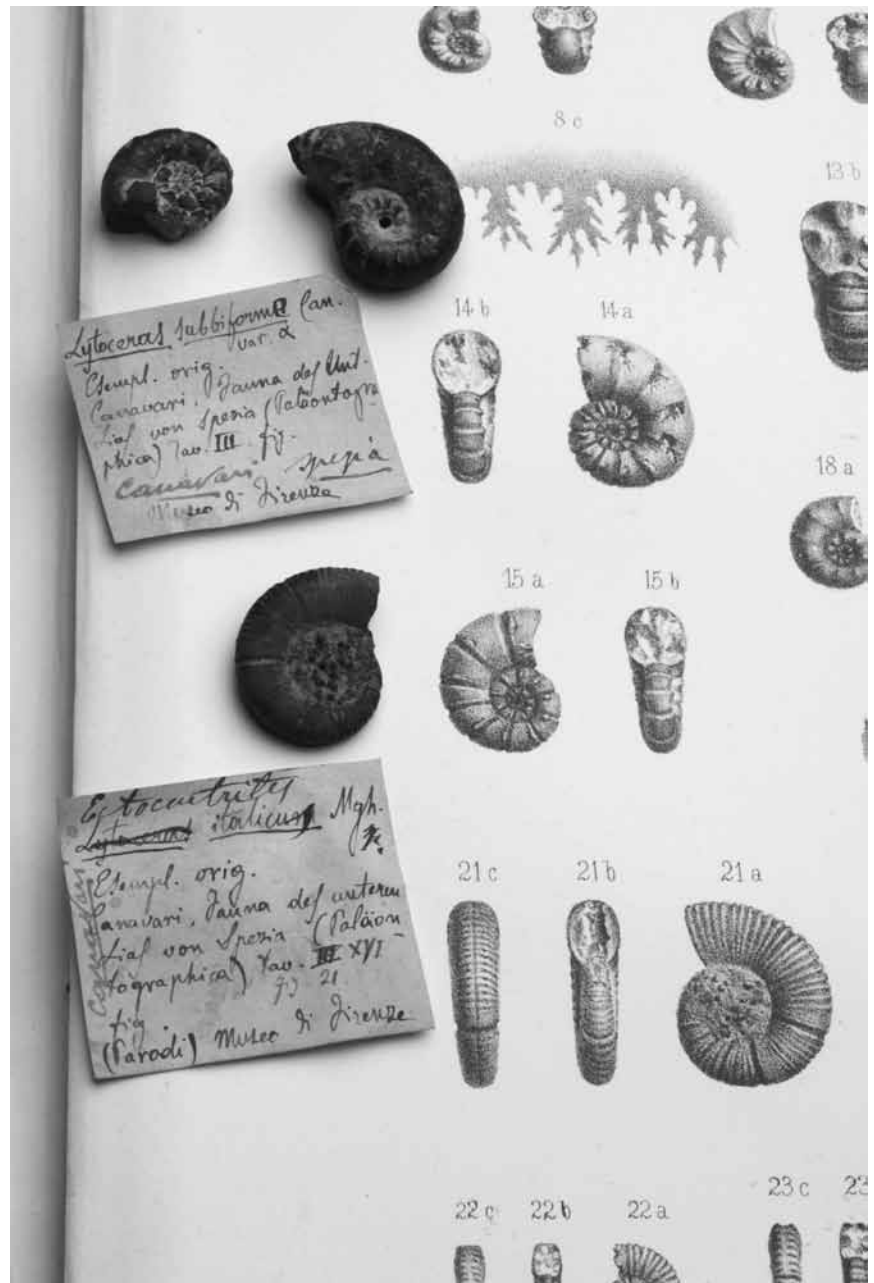 8 c
13 b
14 b
14 a
Lytoceras subbiforme Can.
var. α
Esempl. orig.
Canavari, Fauna des Unt.
Lias von Spezia (Paläontogra
phica) Tav. III fig.
Canavari
Museo di Firenze
18 a
15 a
15 b
Ectocentrites
Lytoceras italicum Mgh.
Canavari
Esempl. orig.
Canavari, Fauna des unteren
Lias von Spezia (Paläon
tographica) Tav. III XVI
fig. 21
fig.
(Parodi) Museo di Firenze
21 c
21 b
21 a
22 c
22 b
22 a
23 c
23